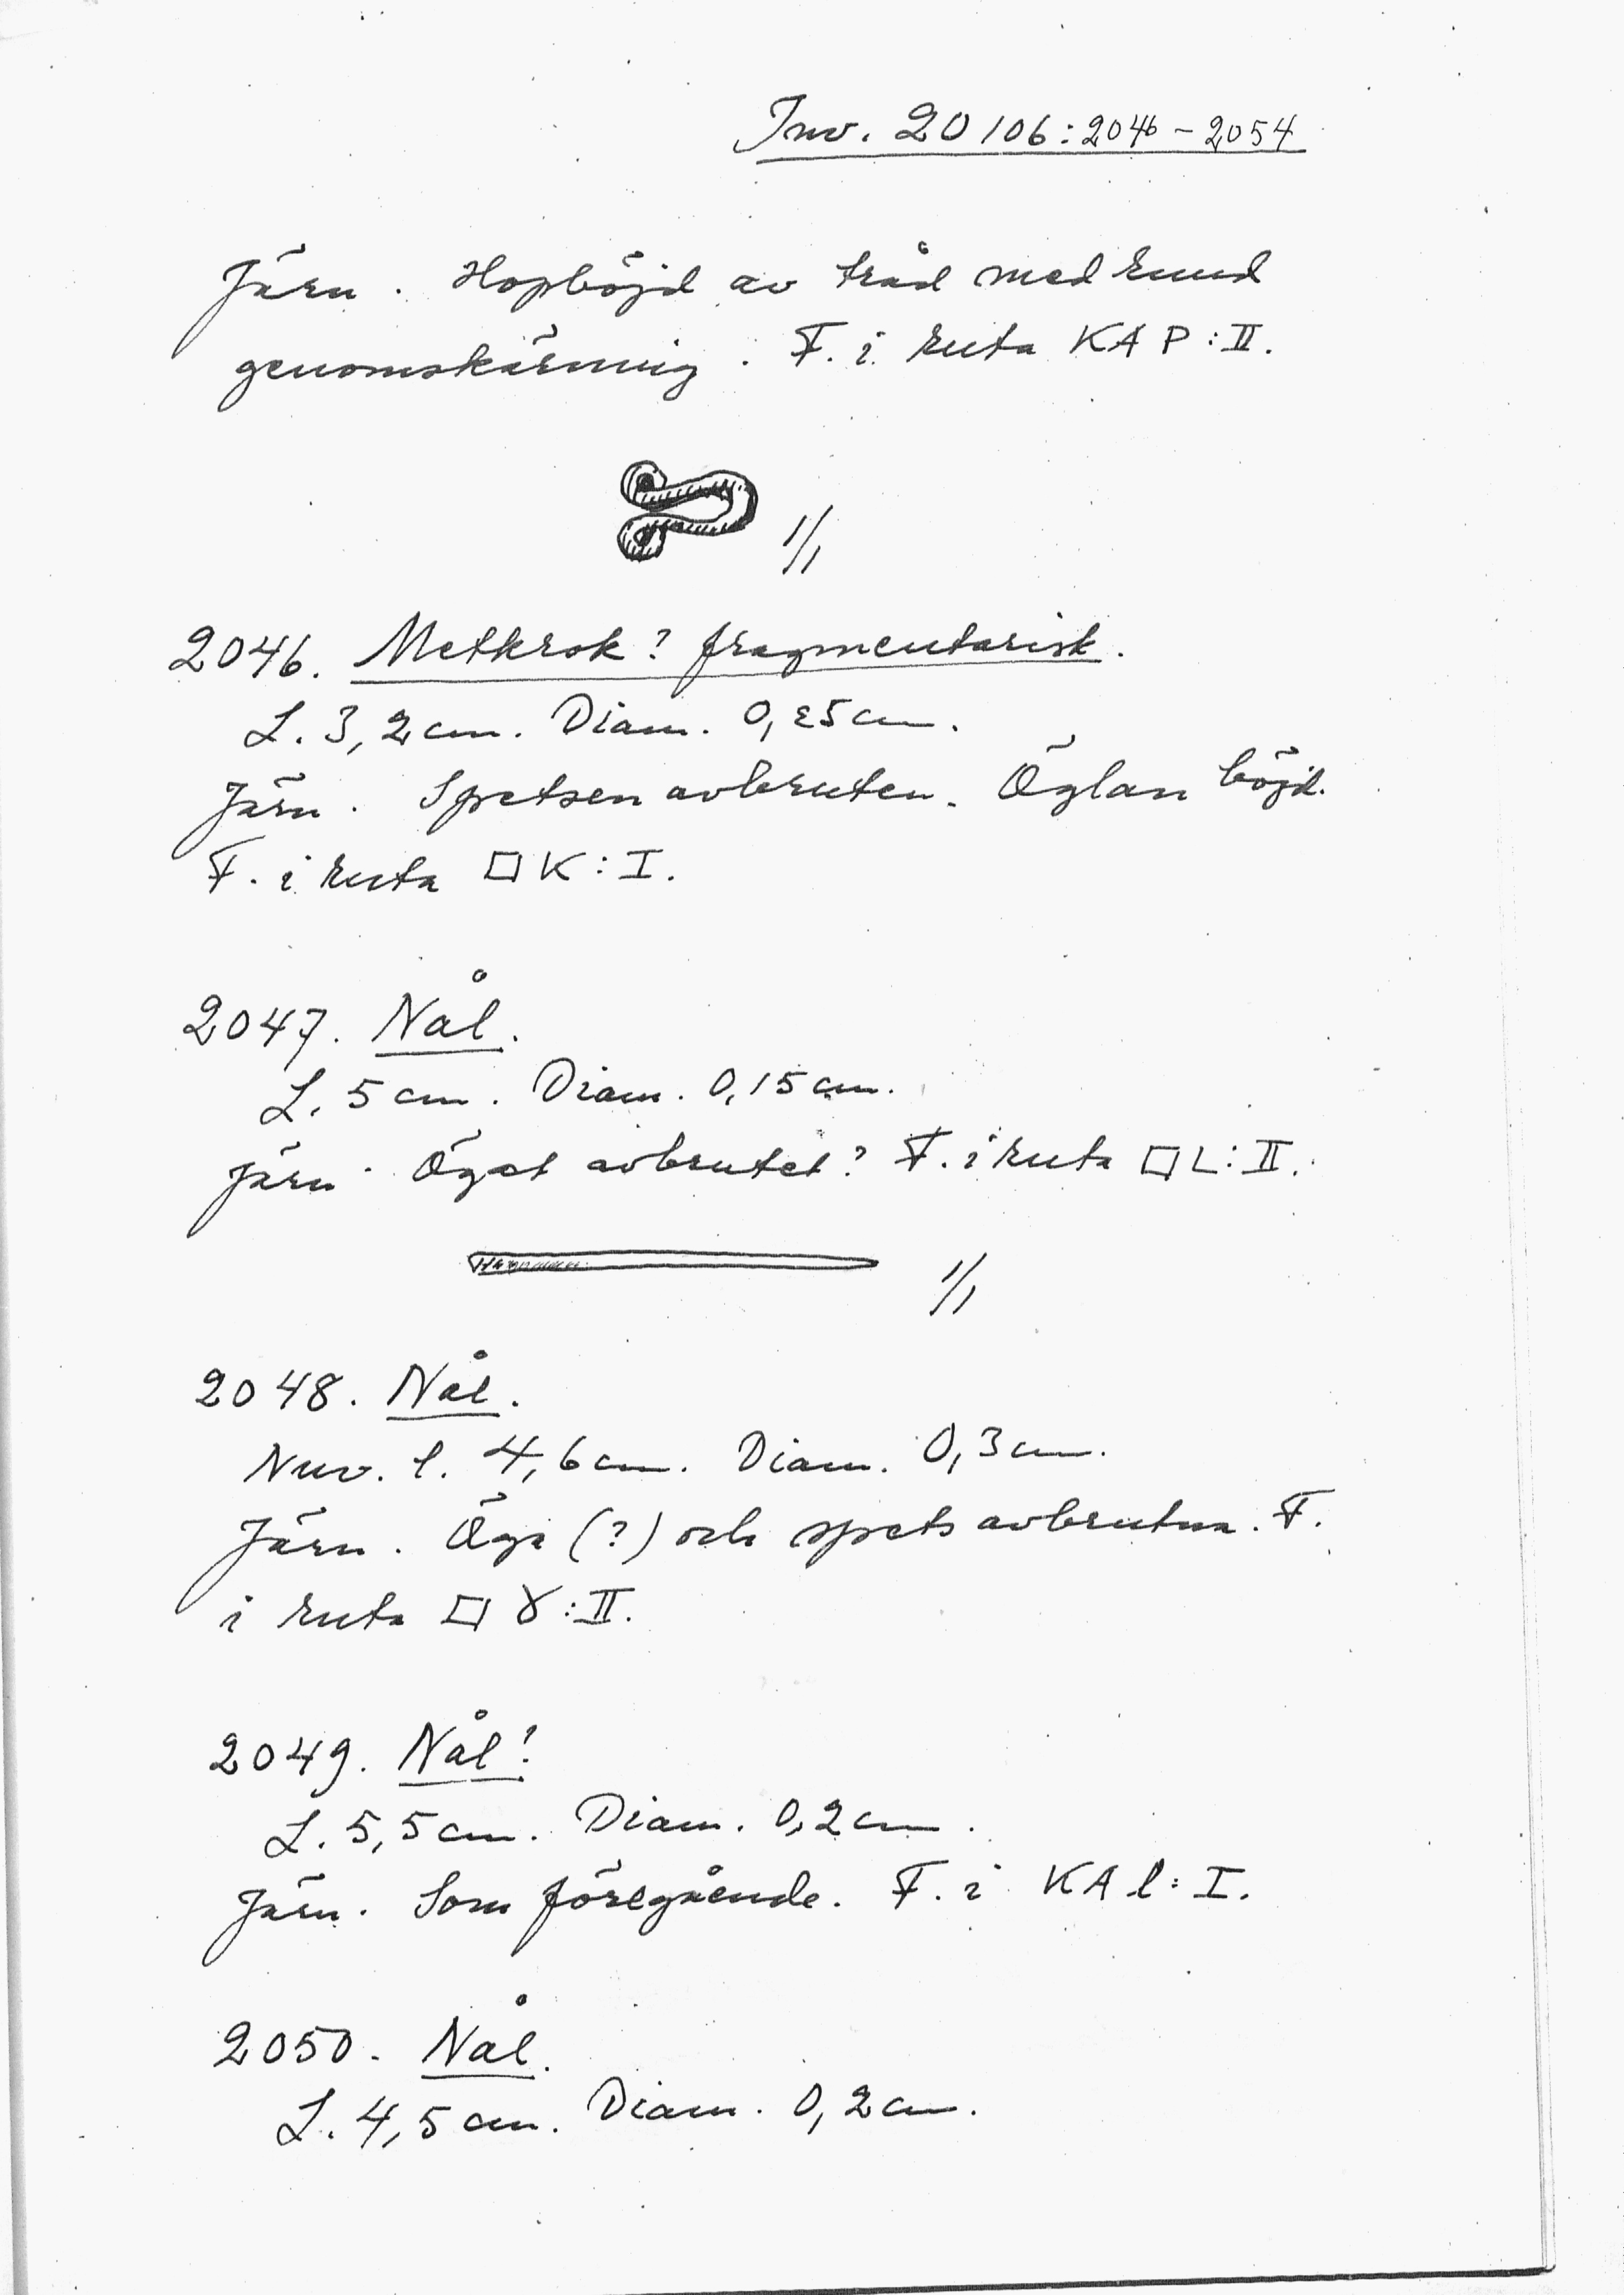 Inv. 20106:2046-2054
Järn. Hopböjd av tråd med rund
genomskärning. F. i ruta KA P:II.
1/1
2046. Metkrok? fragmentarisk.
L. 3,2 cm. Diam. 0,25 cm.
Järn. Spetsen avbruten. Öglan böjd.
F. i ruta □ K:I.
2047. Nål.
L. 5 cm. Diam. 0,15 cm.
Järn. Ögat avbrutet? F. i ruta □ L:II.
1/1
2048. Nål.
Nuv. l. 4,6 cm. Diam. 0,3 cm.
Järn. Öga (?) och spets avbrutna. F.
i ruta □ γ:II.
2049. Nål?
L. 5,5 cm. Diam. 0,2 cm.
Järn. Som föregående. F. i KA l:I.
2050. Nål.
L. 4,5 cm. Diam. 0,2 cm.